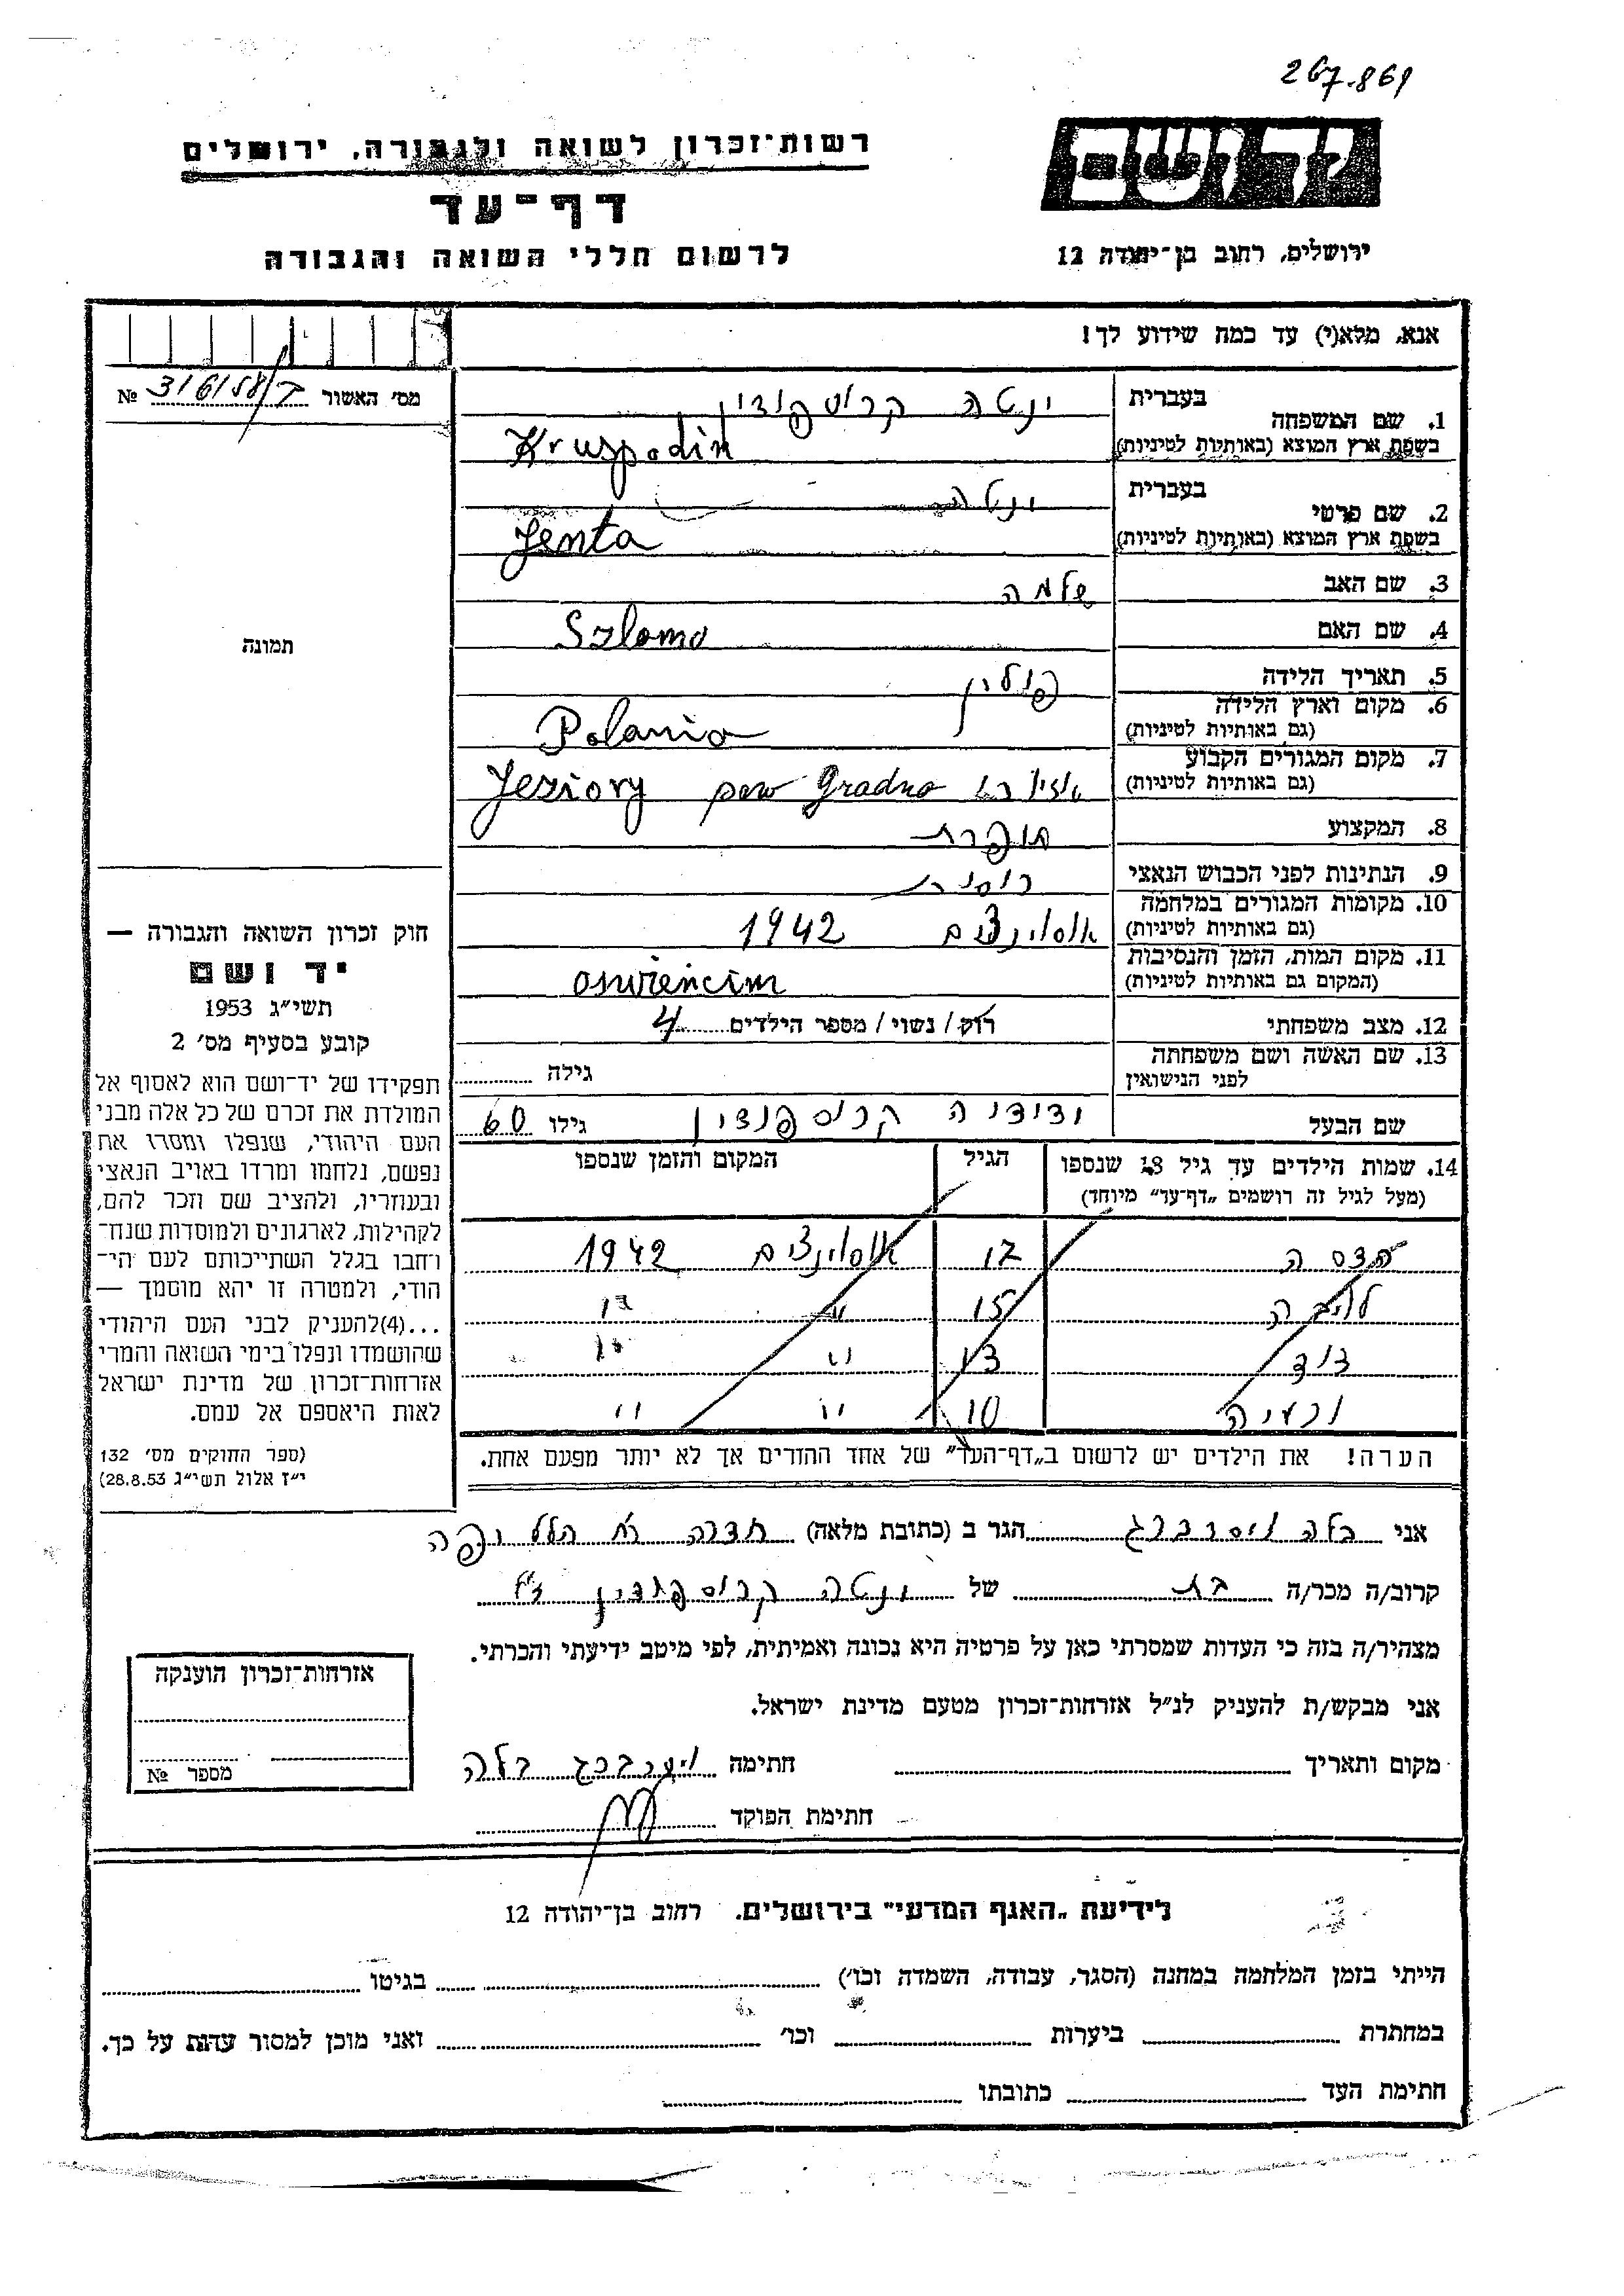 267.869
יד ושם
רשות־זכרון לשואה ולגבורה, ירושלים
דף־עד
לרשום חללי השואה והגבורה
ירושלים, רחוב בן־יהודה 12
אנא, מלא(י) עד כמה שידוע לך!
מס׳ האשור №
בעברית
1. שם המשפחה
ינטה קרוספודין
בשפת ארץ המוצא (באותיות לטיניות)
Kruspodin
בעברית
2. שם פרטי
ינטה
בשפת ארץ המוצא (באותיות לטיניות)
Jenta
3. שם האב שלמה
4. שם האם Szlomo
תמונה
5. תאריך הלידה פולין
6. מקום וארץ הלידה
(גם באותיות לטיניות) Polania
7. מקום המגורים הקבוע
(גם באותיות לטיניות) Jeziory pow Gradno
8. המקצוע תופרת
9. הנתינות לפני הכבוש הנאצי
10. מקומות המגורים במלחמה
(גם באותיות לטיניות) 1942
11. מקום המות, הזמן והנסיבות
(המקום גם באותיות לטיניות) oswiencim
12. מצב משפחתי רוק / נשוי / מספר הילדים 4
13. שם האשה ושם משפחתה
לפני הנישואין גילה
שם הבעל ידידיה קרוספודין גילו 60
14. שמות הילדים עד גיל 18 שנספו הגיל המקום והזמן שנספו
(מעל לגיל זה רושמים „דף־עד״ מיוחד)
הדסה 17 1942
15 " "
דוד 13 " "
10 " "
הערה! את הילדים יש לרשום ב„דף־העד״ של אחד ההורים אך לא יותר מפעם אחת.
חוק זכרון השואה והגבורה —
יד ושם
תשי״ג 1953
קובע בסעיף מס׳ 2
תפקידו של יד־ושם הוא לאסוף אל
המולדת את זכרם של כל אלה מבני
העם היהודי, שנפלו ומסרו את
נפשם, נלחמו ומרדו באויב הנאצי
ובעוזריו, ולהציב שם וזכר להם,
לקהילות, לארגונים ולמוסדות שנח־
רחבו בגלל השתייכותם לעם הי־
הודי, ולמטרה זו יהא מוסמך —
...(4)להעניק לבני העם היהודי
שהושמדו ונפלו בימי השואה והמרי
אזרחות־זכרון של מדינת ישראל
לאות היאספם אל עמם.
(ספר החוקים מס׳ 132
י״ז אלול תשי״ג 28.8.53)
אני בלה ויסברג הגר ב (כתובת מלאה) חדרה רח הלל יפה
קרוב/ה מכר/ה בת של ינטה קרוספודין ז״ל
מצהיר/ה בזה כי העדות שמסרתי כאן על פרטיה היא נכונה ואמיתית, לפי מיטב ידיעתי והכרתי.
אני מבקש/ת להעניק לנ״ל אזרחות־זכרון מטעם מדינת ישראל.
מקום ותאריך חתימה ויסברג בלה
חתימת הפוקד
אזרחות־זכרון הוענקה
מספר №
לידיעת „האגף המדעי״ בירושלים, רחוב בן־יהודה 12
הייתי בזמן המלחמה במחנה (הסגר, עבודה, השמדה וכו׳) בגיטו
במחתרת ביערות וכו׳ ואני מוכן למסור עדות על כך.
חתימת העד כתובתו